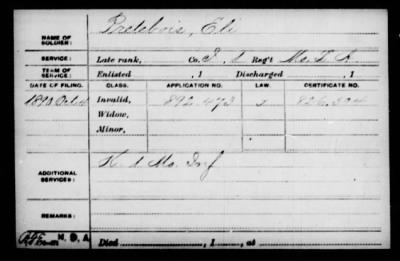 NAME OF SOLDIER: Prelsbois, Eli
SERVICE: Late rank, Co. Reg't Mo.
TERM OF SERVICE: Enlisted , 1 Discharged , 1
DATE OF FILING. CLASS. APPLICATION NO. LAW. CERTIFICATE NO.
Invalid, 892.473
Widow,
Minor,
ADDITIONAL SERVICES: K. 1 Mo. Inf
REMARKS:
N. D. A. Died , 1 , at